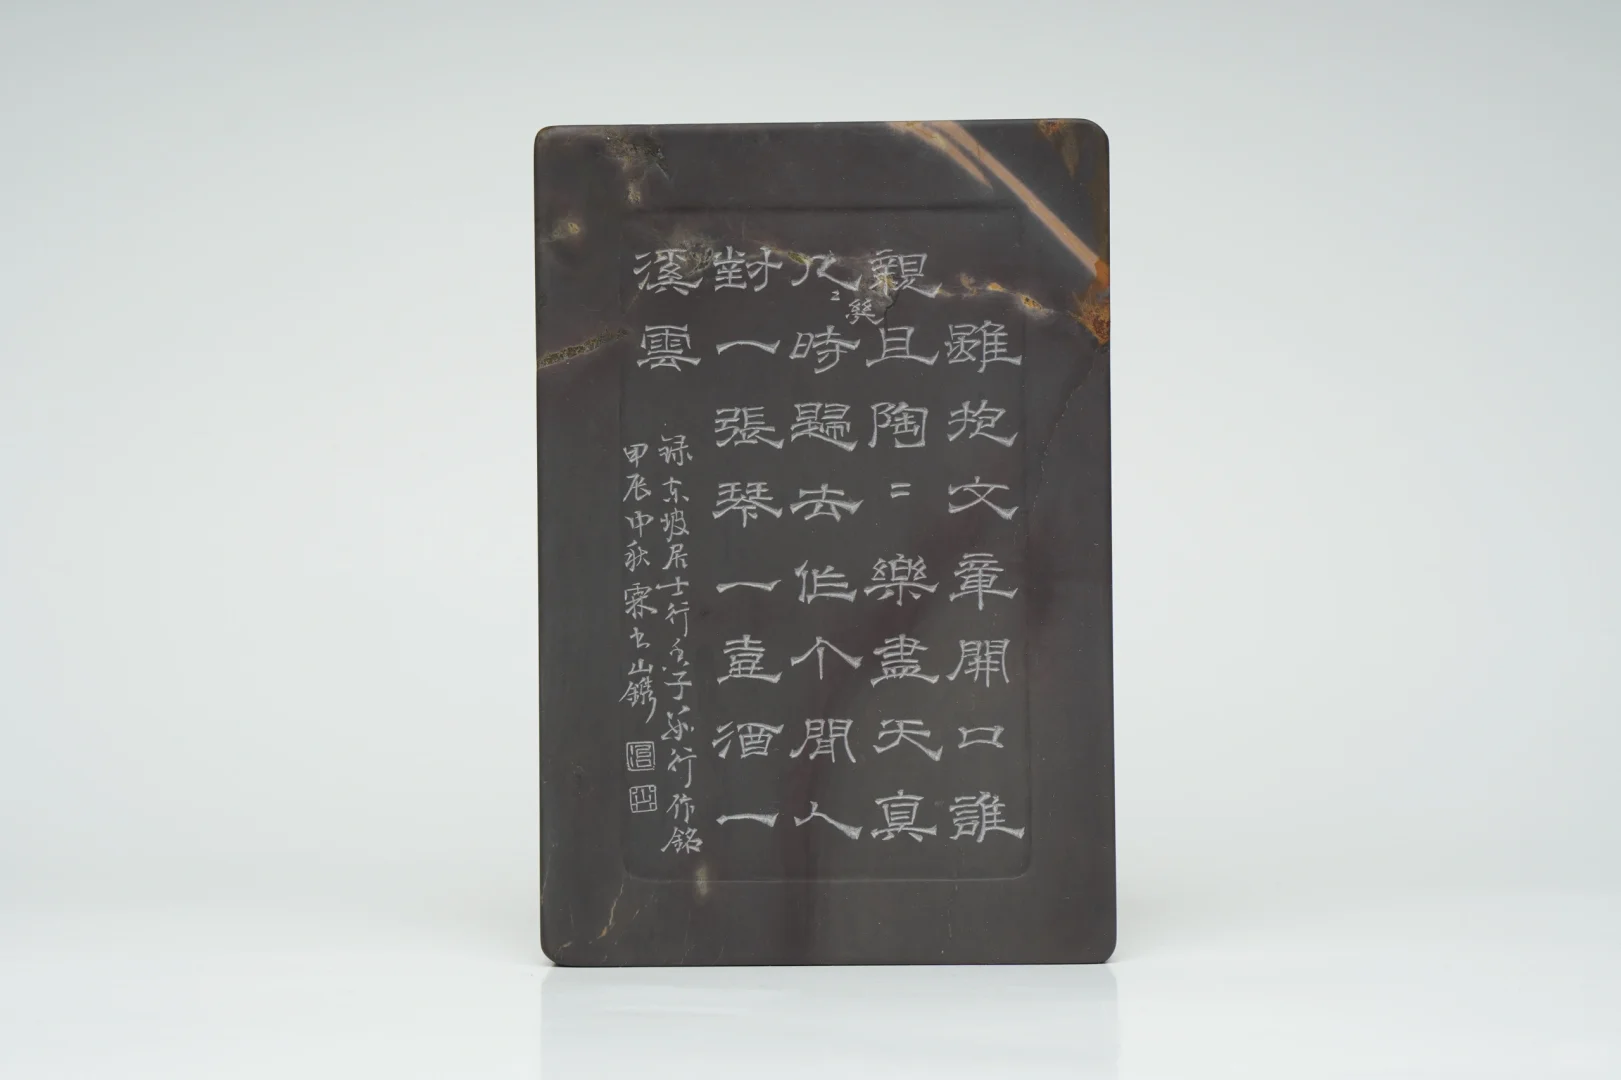 雖抱文章開口誰
親且陶〻樂盡天真
几時歸去作个閒人
對一張琴一壺酒一
溪雲
録东坡居士行香子 行作銘
甲辰中秋霖书山鐫